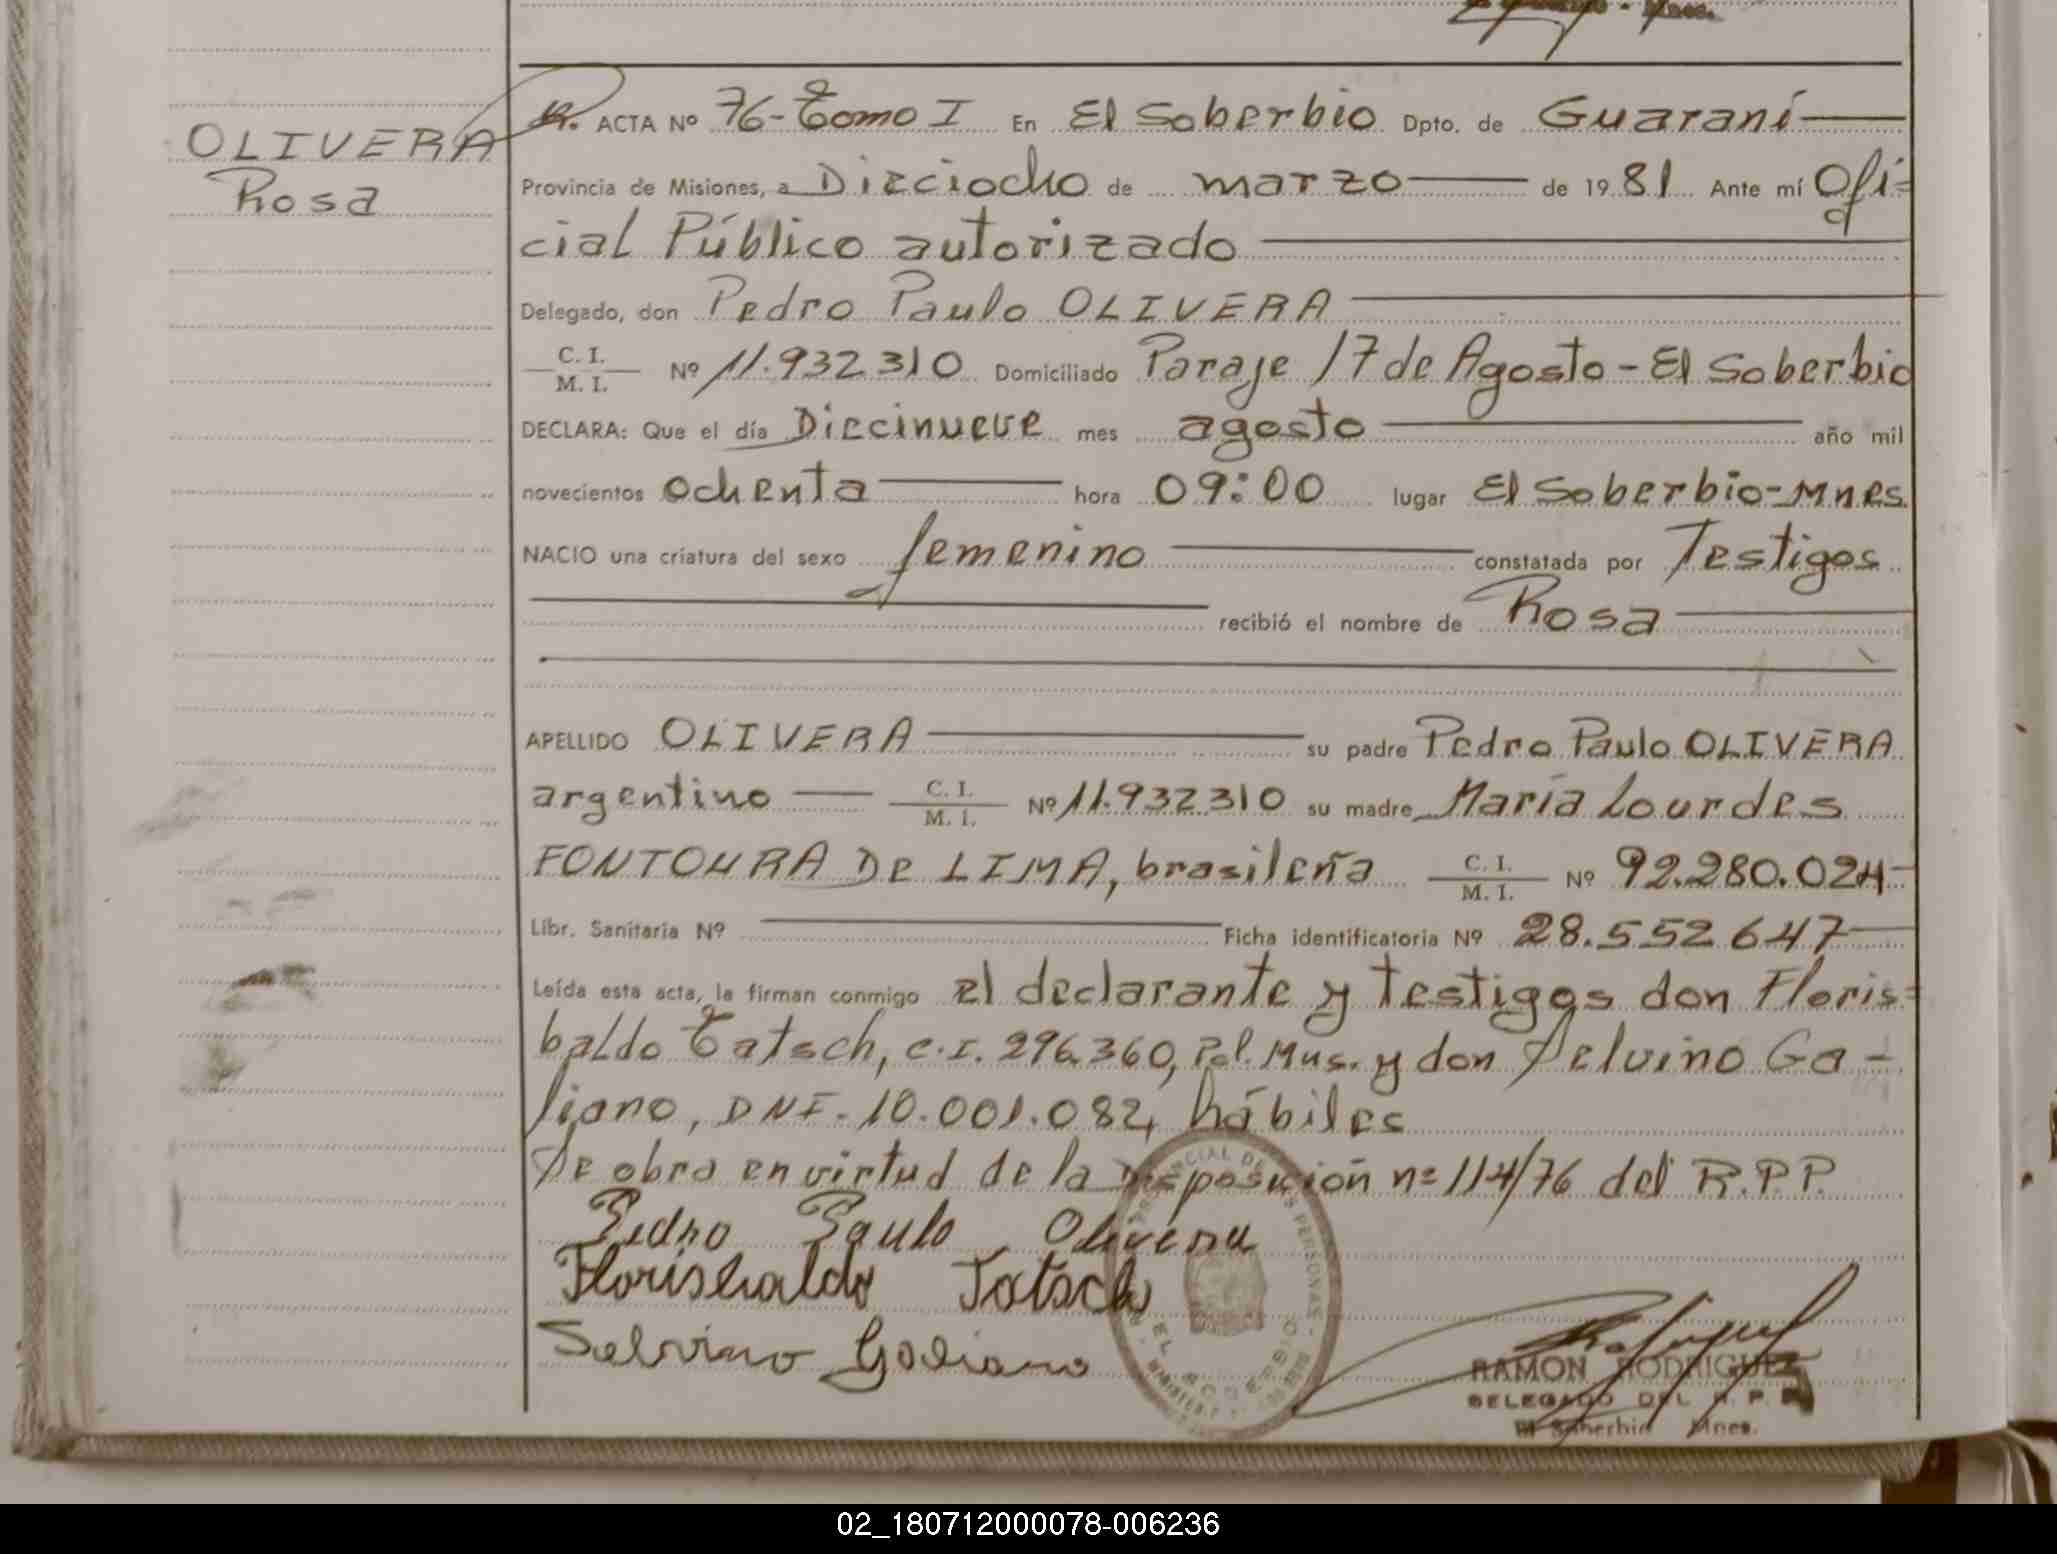 OLIVERA
Rosa
ACTA Nº 76-Tomo I En El Soberbio Dpto. de Guaraní
Provincia de Misiones, a Dieciocho de marzo de 1981 Ante mí Ofi=
cial Público autorizado
Delegado, don Pedro Paulo OLIVERA
C. I.
M. I. Nº 11.932.310 Domiciliado Paraje 17 de Agosto - El Soberbio
DECLARA: Que el día Diecinueve mes agosto año mil
novecientos ochenta hora 09:00 lugar El Soberbio-Mnes.
NACIO una criatura del sexo femenino constatada por Testigos
recibió el nombre de Rosa
APELLIDO OLIVERA su padre Pedro Paulo OLIVERA
argentino C. I.
M. I. Nº 11.932310 su madre María Lourdes
FONTOURA De LIMA, brasileña C. I.
M. I. Nº 92.280.024
Libr. Sanitaria Nº Ficha identificatoria Nº 28.552.647
Leída esta acta, la firman conmigo el declarante y testigos don Floris=
baldo Tatsch, c.I. 296.360, Pol. Mns. y don Selvino Ga-
liano, DNI. 10.001.082, hábiles
Se obra en virtud de la Disposición nº 114/76 del R.P.P.
Pedro Paulo Olivera
Florisbaldo Tatsch
Selvino Galiano
PROVINCIAL DE LAS PERSONAS
EL SOBERBIO
RAMON RODRIGUEZ
DELEGADO DEL R. P. P.
El Soberbio Mnes.
02_180712000078-006236